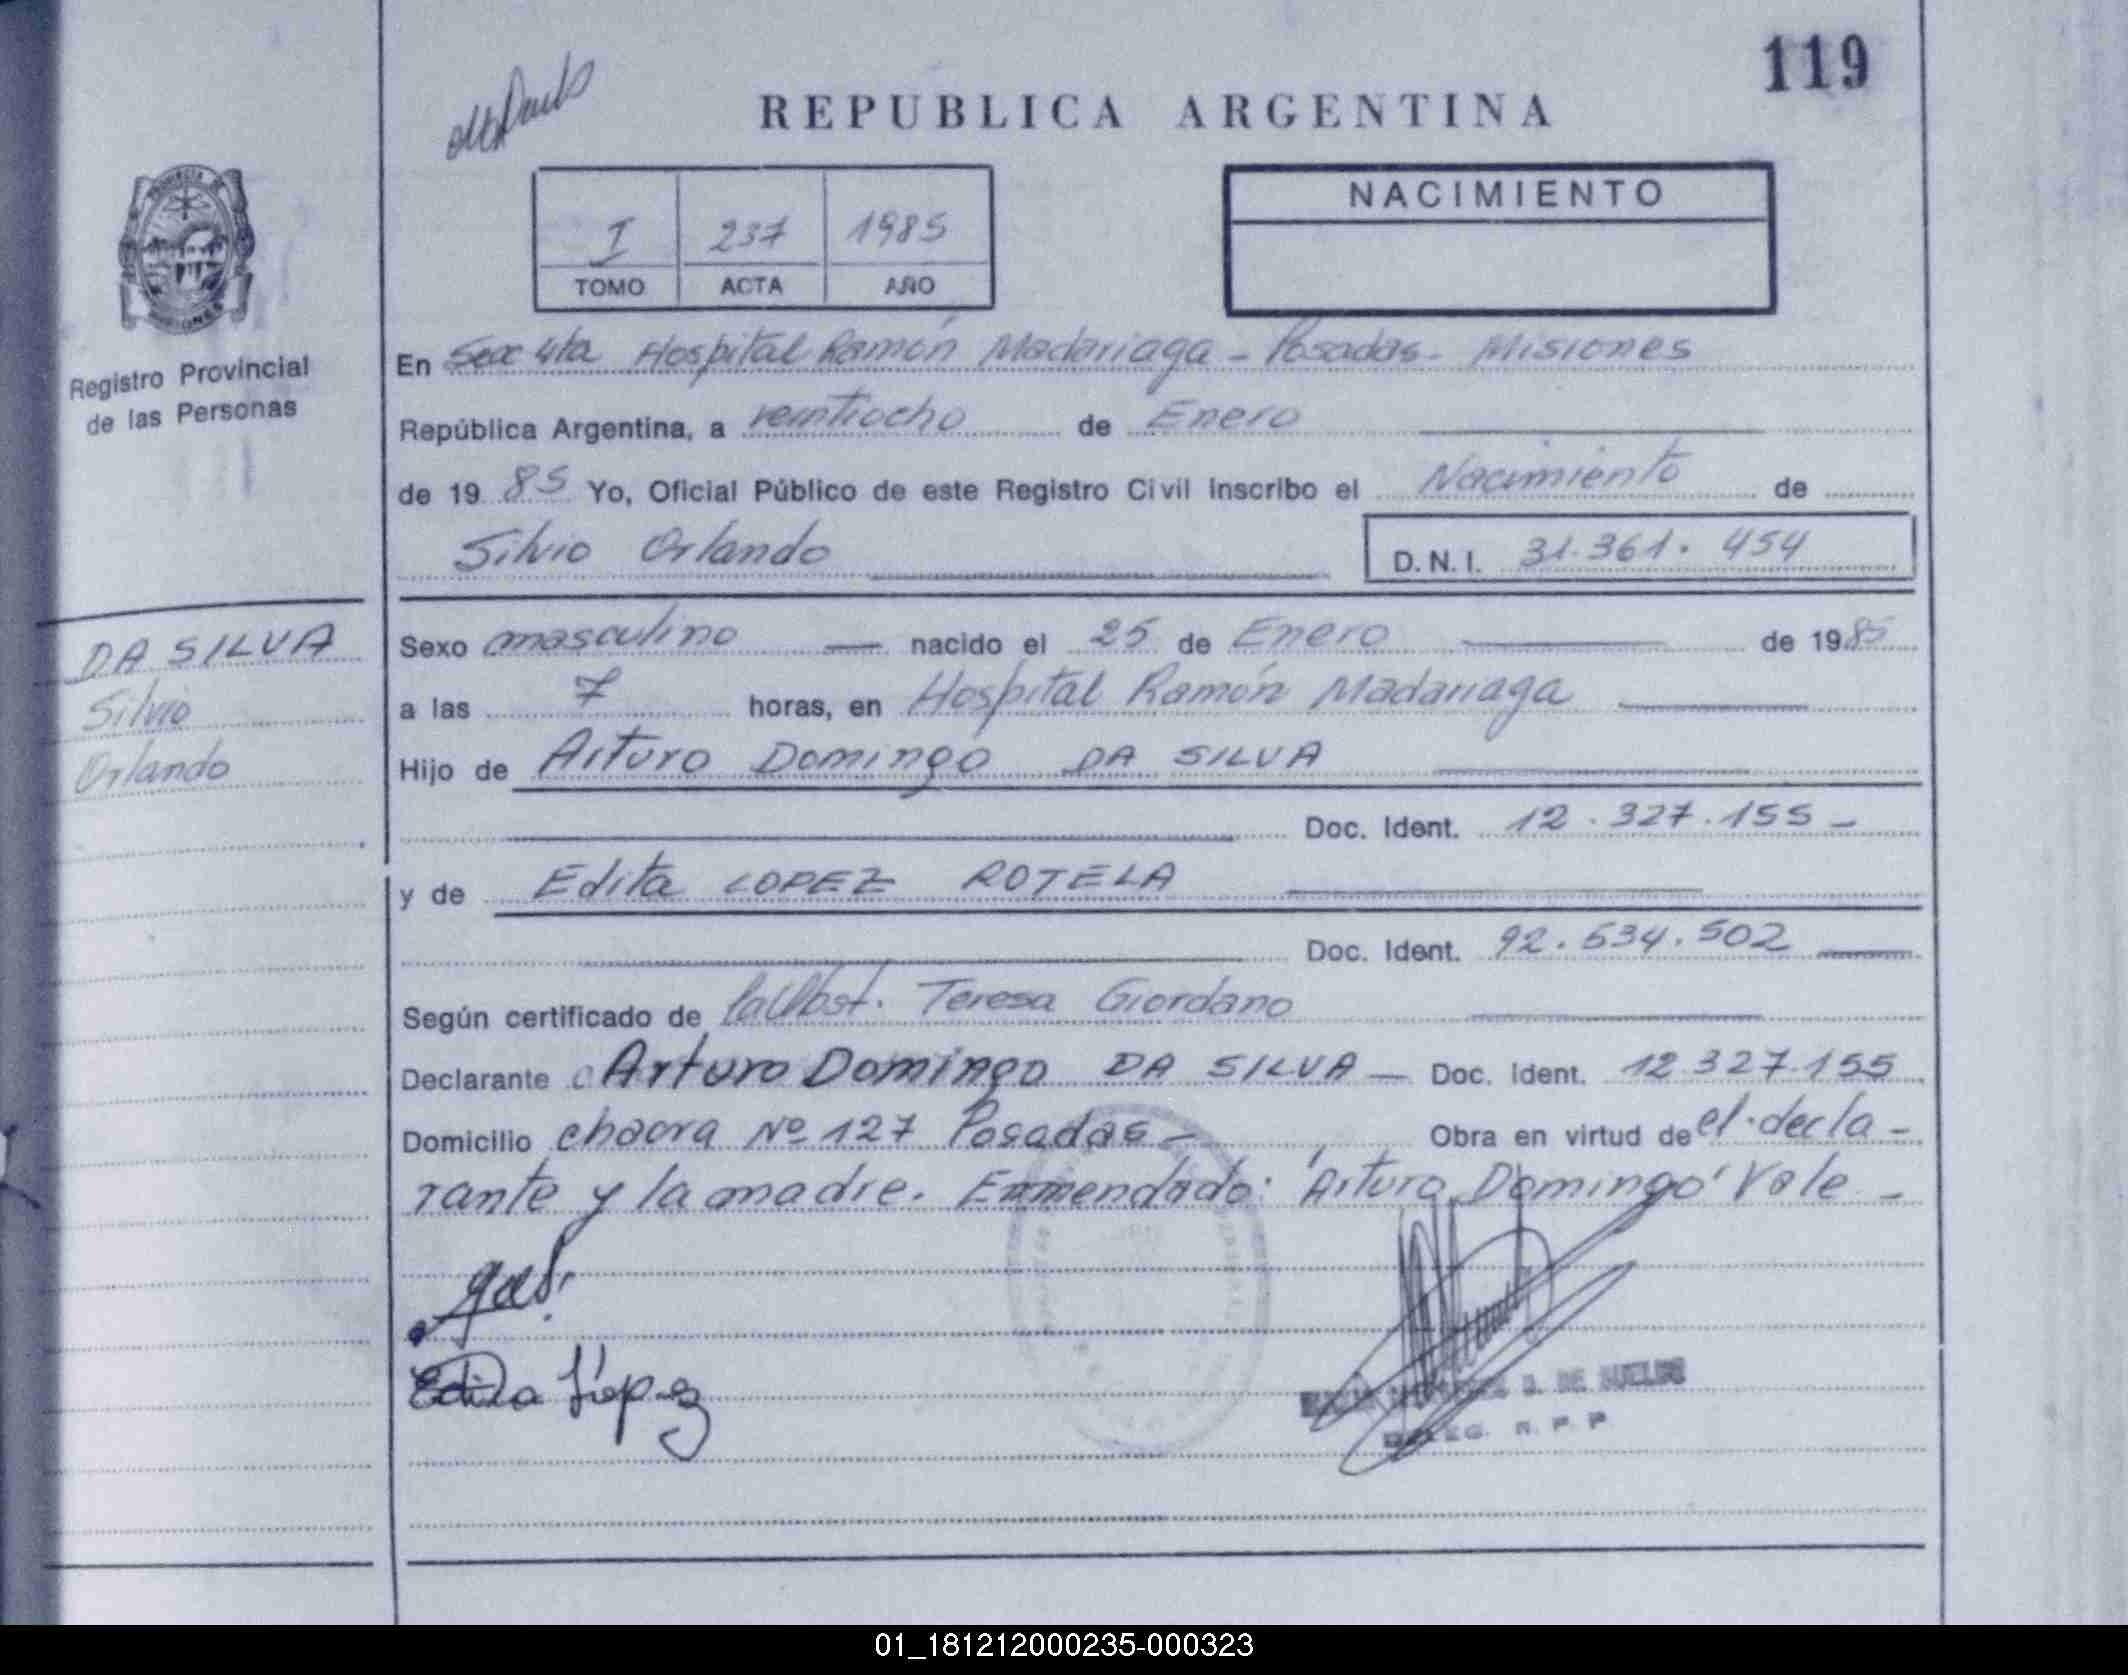 119
REPUBLICA ARGENTINA
I 237 1985
TOMO ACTA AÑO
NACIMIENTO
Registro Provincial
de las Personas
En Secc 4ta Hospital Ramón Madariaga - Posadas - Misiones
República Argentina, a veintiocho de Enero
de 19 85 Yo, Oficial Público de este Registro Civil inscribo el Nacimiento de
Silvio Orlando
D.N.I. 31.361.454
DA SILVA
Silvio
Orlando
Sexo masculino — nacido el 25 de Enero de 1985
a las 7 horas, en Hospital Ramón Madariaga
Hijo de Arturo Domingo DA SILVA
Doc. Ident. 12.327.155 -
y de Edita LOPEZ ROTELA
Doc. Ident. 92.534.502
Según certificado de la Obst. Teresa Giordano
Declarante Arturo Domingo DA SILVA — Doc. Ident. 12.327.155
Domicilio chacra Nº 127 Posadas - Obra en virtud de el decla-
rante y la madre. Enmendado: "Arturo Domingo" Vale -
Edita López
D. DE
DELEG. R. P. P.
01_181212000235-000323